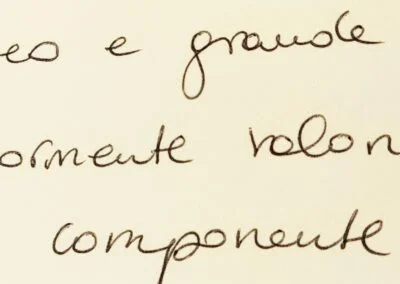 eo e grande
ormente valor
componente